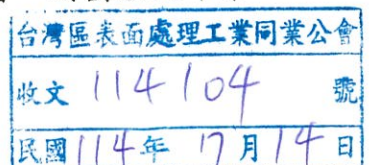 台灣區表面處理工業同業公會
收文 114104 號
民國114年 7月14日